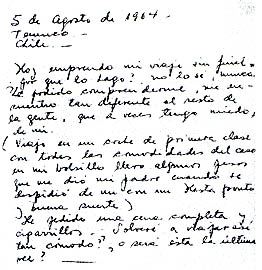 5 de Agosto de 1964.
Temuco.-
Chile.-
Hoy emprendo mi viaje sin fin!
¿por que lo hago? no lo sé, nunca
he podido comprenderme, me en-
cuentro tan diferente al resto de
la gente, que a veces tengo miedo,
de mi.
(Viajo en un coche de primera clase
con todas las comodidades del caso
en mi bolsillo llevo algunos pesos
que me dió mi padre cuando se
despidió de mi con un Hasta pronto
y buena suerte)
He pedido una cena completa y
cigarrillos. Volveré a viajar así
tan cómodo?, o será ésta la última
vez?